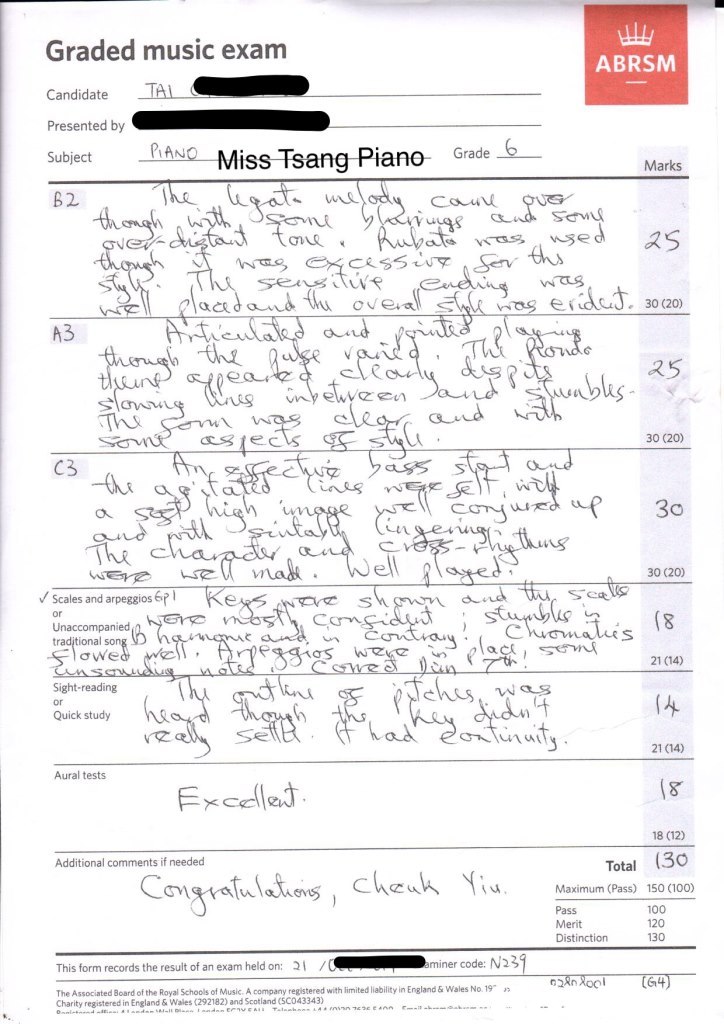 Graded music exam
ABRSM
Candidate TAI
Presented by
Subject PIANO Miss Tsang Piano Grade 6
Marks
B2 The legato melody came over
though with some blurrings and some
over-distant tone. Rubato was used
though it was excessive for this
style. The sensitive ending was
well placed and the overall style was evident.
25
30 (20)
A3 Articulated and pointed playing
though the pulse varied. The Rondo
theme appeared clearly despite
slowing lines inbetween and stumbles.
The form was clear and with
some aspects of style.
25
30 (20)
C3 An effective bass start and
the agitated lines were felt, with
a high image well conjured up
and with suitable lingering.
The character and cross-rhythms
were well made. Well played.
30
30 (20)
✓ Scales and arpeggios Gp1 Keys were shown and the scales
or
Unaccompanied were mostly confident; stumbles in
traditional song B harmonic and in contrary. Chromatics
flowed well. Arpeggios were in place, some
unsounding notes. Correct Dim 7th.
18
21 (14)
Sight-reading The outline of pitches was
or heard though the key didn't
Quick study really settle. It had continuity.
14
21 (14)
Aural tests
Excellent.
18
18 (12)
Additional comments if needed
Congratulations, Cheuk Yiu.
Total 130
Maximum (Pass) 150 (100)
Pass 100
Merit 120
Distinction 130
This form records the result of an exam held on: 21 / aminer code: N239
[G4]
The Associated Board of the Royal Schools of Music. A company registered with limited liability in England & Wales No. 19
Charity registered in England & Wales (292182) and Scotland (SC043343)